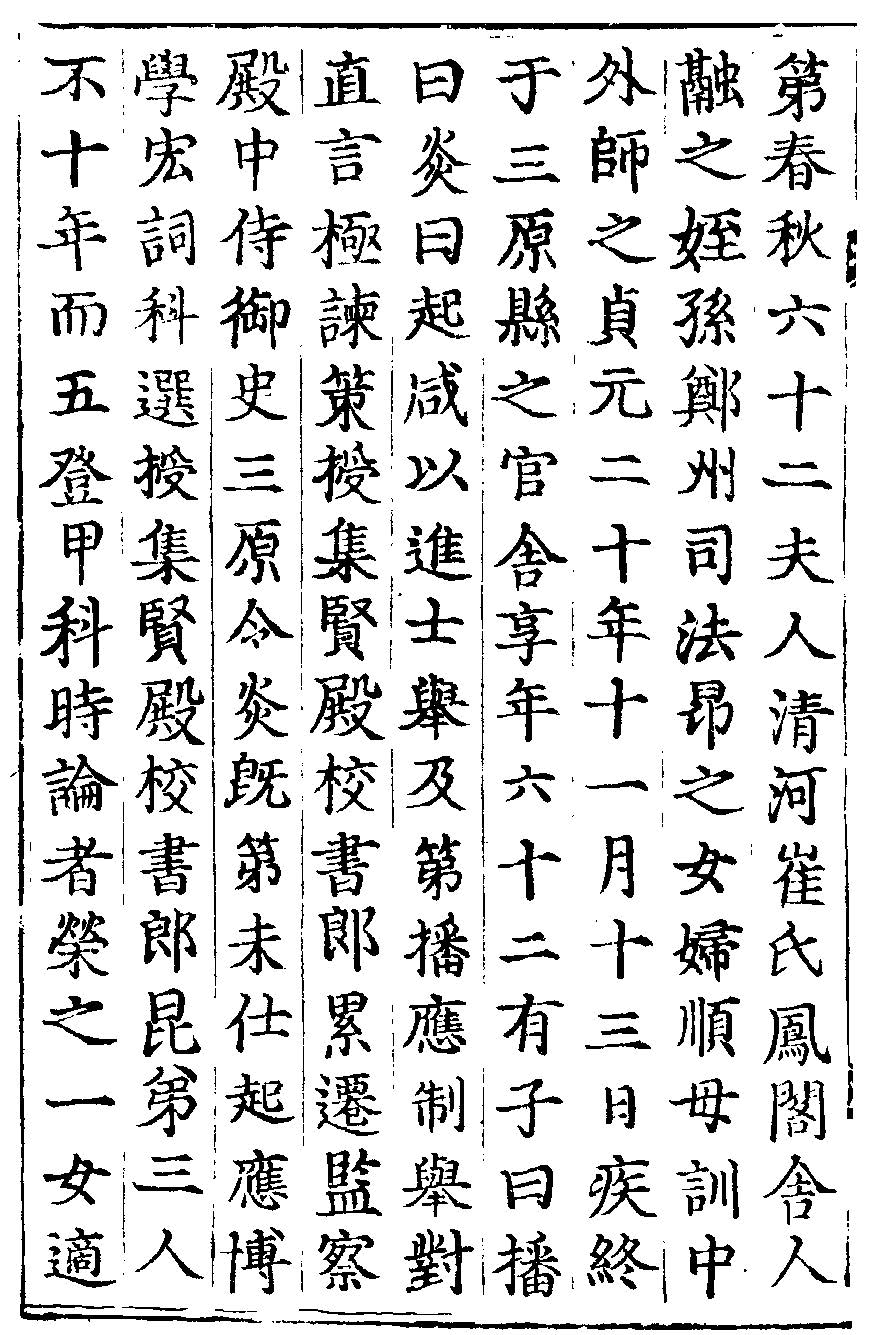 第春秋六十二夫人清河崔氏鳳閣舍人
融之姪孫鄭州司法昂之女婦順母訓中
外師之貞元二十年十一月十三日疾終
于三原縣之官舍享年六十二有子曰播
曰炎曰起咸以進士舉及第播應制舉對
直言極諫策授集賢殿校書郎累遷監察
殿中侍御史三原令炎既第未仕起應博
學宏詞科選授集賢殿校書郎昆弟三人
不十年而五登甲科時論者榮之一女適